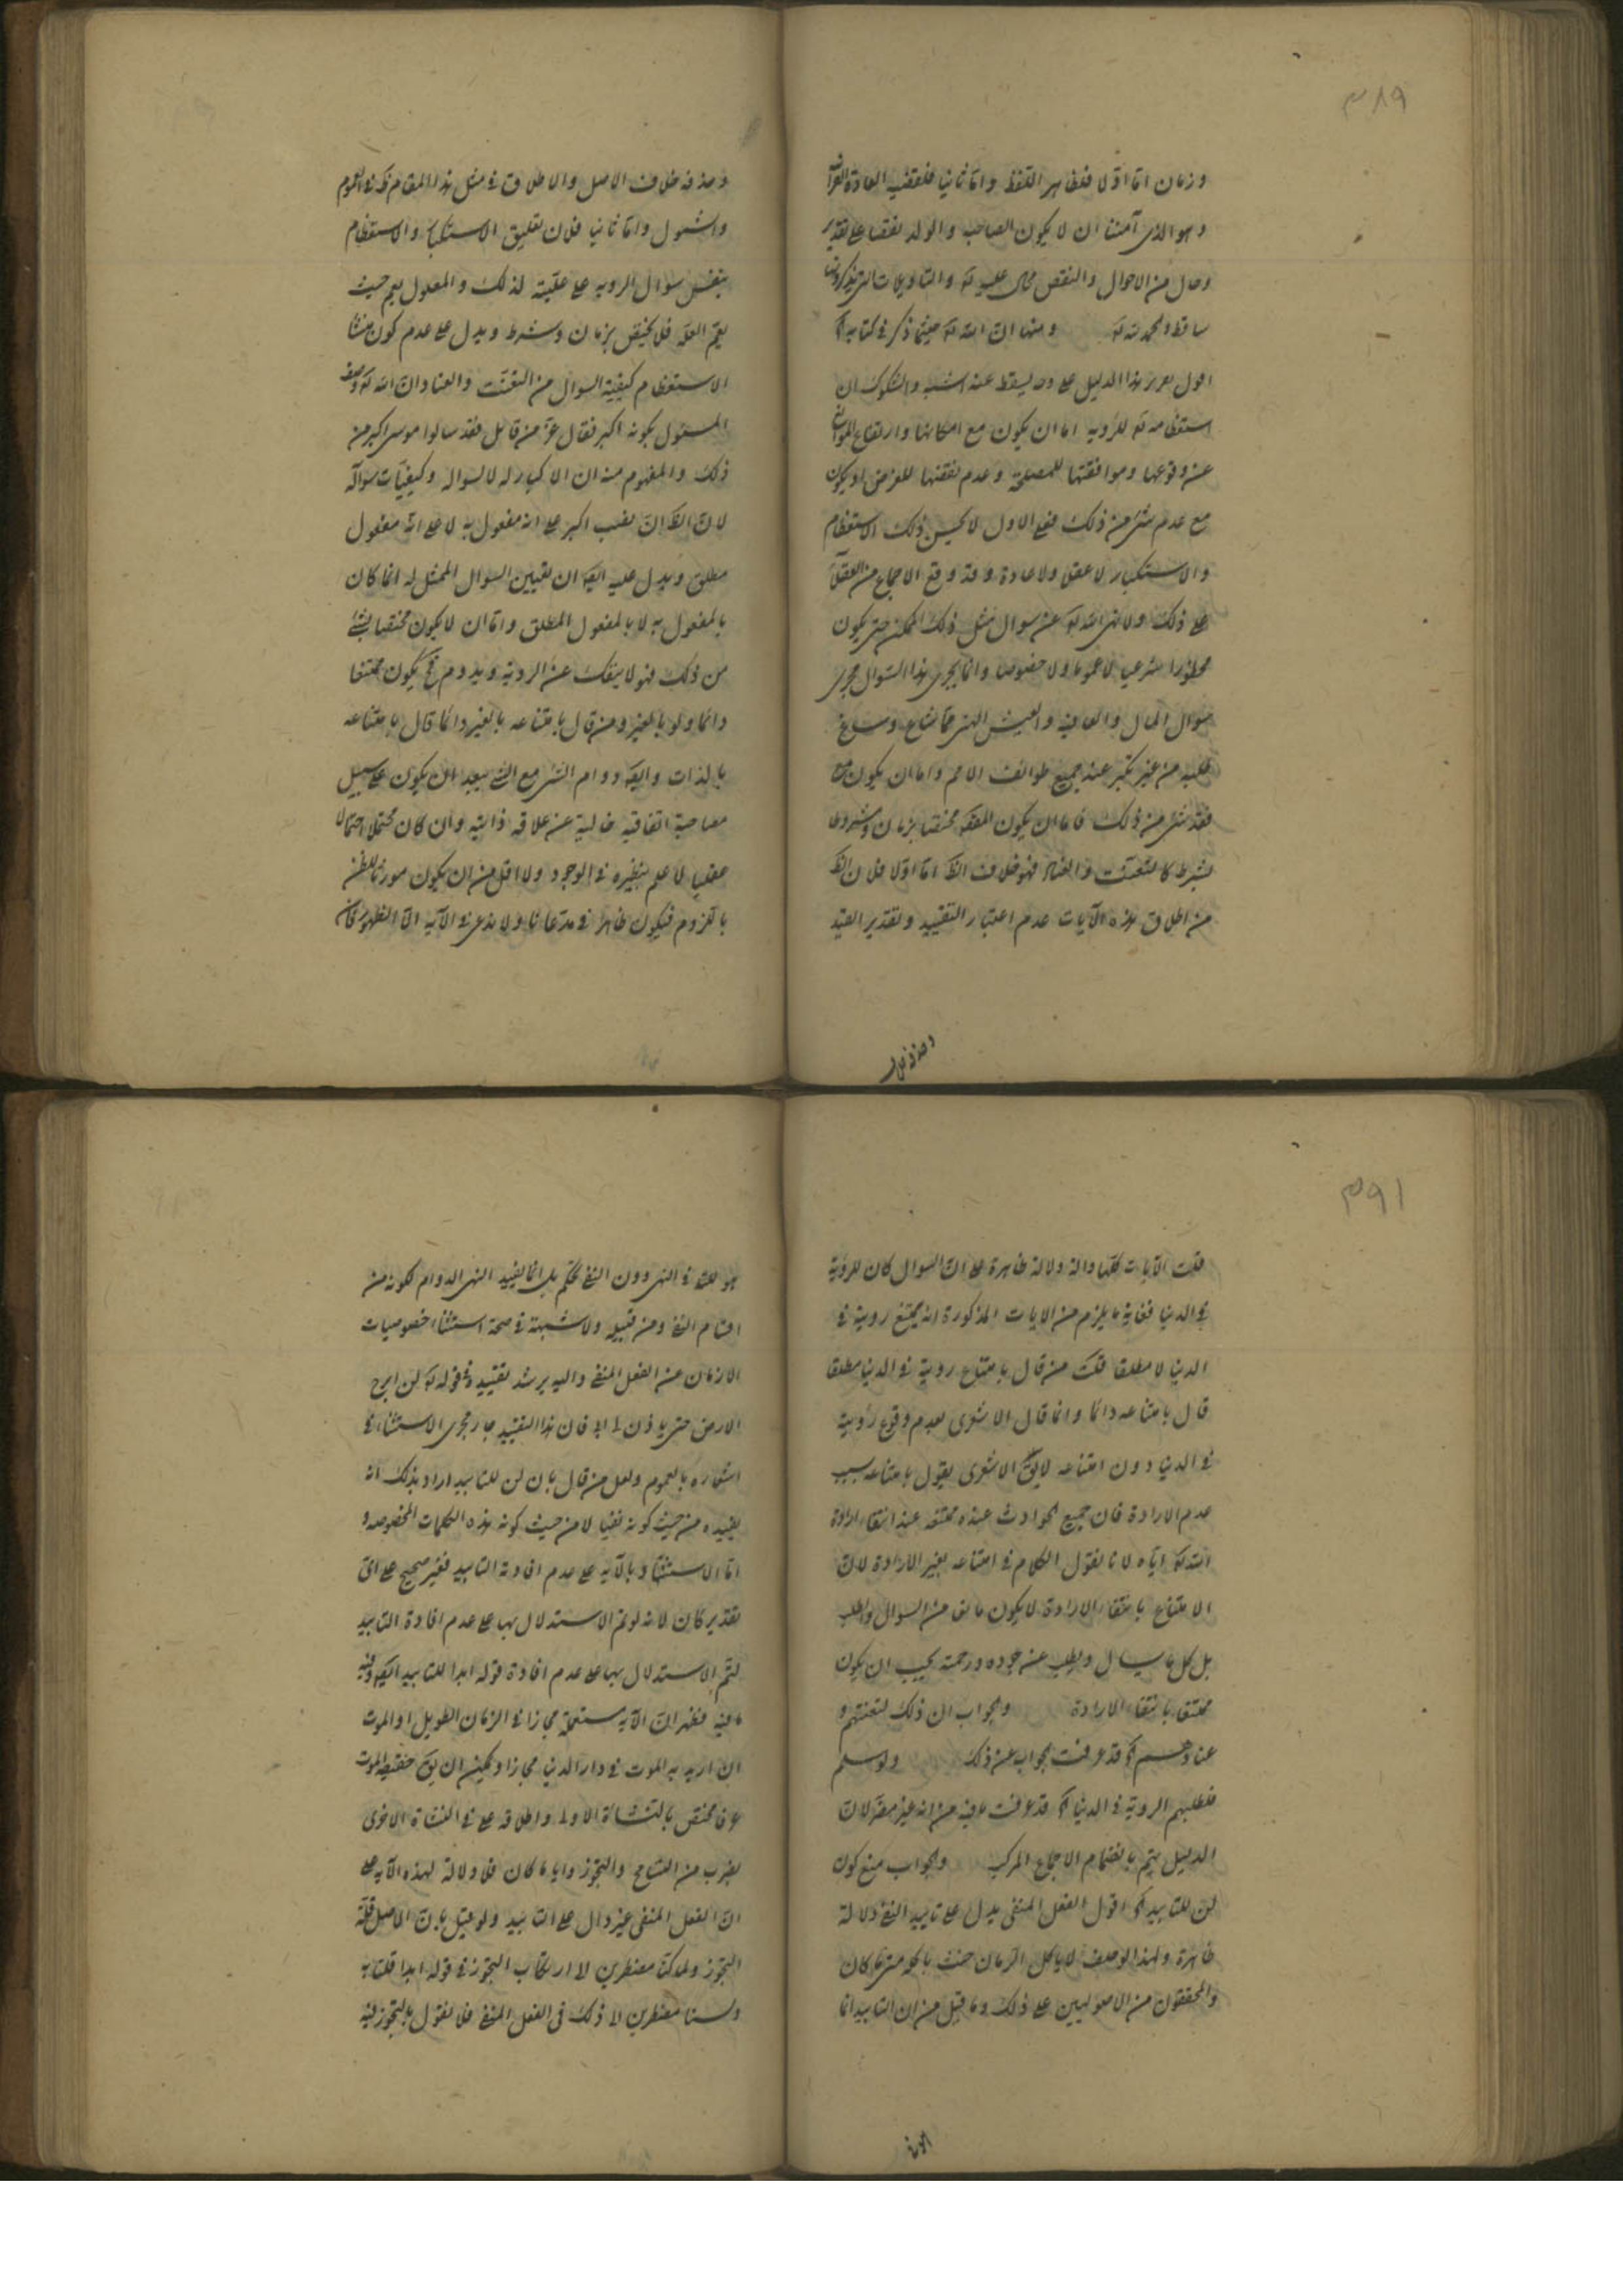 ٣٨٩
وزمان اما اولا فبظاهر اللفظ واما ثانيا فلمقتضى العادة
وهو الذى آمننا ان لا يكون الصاحبة والولد نقصا على تقدير
وحال من الاحوال والنقص محال عليه تع والتاويلات التى يذكرونها
ساقطة والحمد لله تع ومنها ان الله تع حيثما ذكر فى كتابه آه
اقول تحرير هذا الدليل على وجه يسقط عنه الشبه والشكوك ان
استعظامه تع للرؤية اما ان يكون مع امكانها وارتفاع الموانع
عن وقوعها وموافقتها للمصلحة وعدم نقضها للغرض او يكون
مع عدم شئ من ذلك فعلى الاول لا يحسن ذلك الاستعظام
والاستكبار لا عقلا ولا عادة وقد وقع الاجماع من العقلاء
على ذلك ولا نهى الله تع عن سوال مثل ذلك الممكن حتى يكون
محظورا شرعيا لا عموما ولا خصوصا وانما يجرى هذا السوال مجرى
سوال المال والعافية والعيش الهنى مما شاع وساغ
طلبه من غير نكير عند جميع طوائف الامم واما ان يكون مع
فقد شئ من ذلك فاما ان يكون الفقد مختصا بزمان ومشروطا
بشرط كالتعنت والعناد فهو خلاف الظ اما اولا فلان الظ
من اطلاق هذه الآيات عدم اعتبار التقييد وتقدير القيد
وحذفه خلاف
وحذفه خلاف الاصل والاطلاق فى مثل هذا المقام فى العموم
والشمول واما ثانيا فلان تعليق الاستكبار والاستعظام
بنفس سؤال الروية على علية لذلك والمعلول يعم حيث
يعم العلة فلا يختص بزمان وشرط ويدل على عدم كون منشأ
الاستعظام كيفية السوال من التعنت والعناد ان الله تع وصف
المسئول بكونه اكبر فقال عز من قائل فقد سالوا موسى اكبر من
ذلك والمفهوم منه ان الاكبار له لا لسواله وكيفيات سواله
لان الظ ان نصب اكبر على انه مفعول به لا على انه مفعول
مطلق ويدل عليه ايضا ان تعيين السوال الممثل له انما كان
بالمفعول به لا بالمفعول المطلق واما ان لا يكون مختصا بشئ
من ذلك فهو لا ينفك عن الروية ويدوم فح يكون ممتنعا
دائما ولو بالغير ومن قال بامتناعه بالغير دائما قال بامتناعه
بالذات وايضا دوام الشئ مع الشئ يبعد ان يكون على سبيل
مصاحبة اتفاقية خالية عن علاقة ذاتية وان كان محتملا احتمالا
عقليا لا علم بنظيره فى الوجود ولا اقل من ان يكون مورثا للظن
باللزوم فيكون ظاهرا فى مدعانا ولا ندعى فى الآية الا الظهور فان
٣٩١
قلت الآيات كلها دالة دلالة ظاهرة على ان السوال كان للرؤية
فى الدنيا فغاية ما يلزم من الايات المذكورة انه يمتنع رويته فى
الدنيا لا مطلقا قلت من قال بامتناع رويته فى الدنيا مطلقا
قال بامتناعه دائما وانما قال الاشعرى بعدم وقوع رؤيته
فى الدنيا دون امتناعه لايق الاشعرى يقول بامتناعه بسبب
عدم الارادة فان جميع الحوادث عنده ممتنعة عند انتفاء ارادة
الله تع اياه لانا نقول الكلام فى امتناعه بغير الارادة لان
الامتناع بانتفاء الارادة لا يكون مانعا من السوال والطلب
بل كل ما يسال ويطلب عن جوده ورحمته يجب ان يكون
ممتنعا بانتفاء الارادة والجواب ان ذلك لتعنتهم و
عنادهم آه قد عرفت الجواب عن ذلك ولو سلم
فطلبهم الروية فى الدنيا آه قد عرفت ما فيه من انه غير مضر لان
الدليل يتم بانضمام الاجماع المركب والجواب منع كون
لن للتابيد آه اقول الفعل المنفى يدل على تابيد النفى دلالة
ظاهرة ولهذا لو حلف لا ياكل الزمان حنث باكله متى ما كان
والمحققون من الاصوليين على ذلك وما قيل من ان التابيد انما
هو للثا فى النهى دون النفى تحكم بل انما يفيد النهى الدوام لكونه من
اقسام النفى ومن قبيله ولا شبهة فى صحة استثناء خصوصيات
الازمان من الفعل المنفى واليه يرشد تقييده فى قوله تع لن ابرح
الارض حتى ياذن لى ابى فان هذا التقييد جار مجرى الاستثناء فى
اشعاره بالعموم ولعل من قال بان لن للتابيد اراد بذلك انه
يفيده من حيث كونه نفيا لا من حيث كونه هذه الكلمات المخصوصة و
اما الاستشهاد بالآية على عدم افادة التابيد فغير صحيح على اى
تقدير كان لانه لو تم الاستدلال بها على عدم افادة التابيد
لتم الاستدلال بها على عدم افادة قوله ابدا للتابيد ايضا وفيه
ما فيه فظهر ان الآية مستعملة مجازا فى الزمان الطويل او الموت
ان اريد به الموت فى دار الدنيا مجازا ويمكن ان يق حقيقة الموت
عرفا مختص بالنشاة الاولى واطلاقه على ما فى النشاة الاخرى
بضرب من التسامح والتجوز وايا ما كان فلا دلالة لهذه الآية على
ان الفعل المنفى غير دال على التابيد ولو قيل بان الاصل قلة
التجوز ولما كنا مضطرين الى ارتكاب التجوز فى قوله ابدا قلنا به
ولسنا مضطرين الى ذلك فى الفعل المنفى فلا نقول بالتجوز فيه